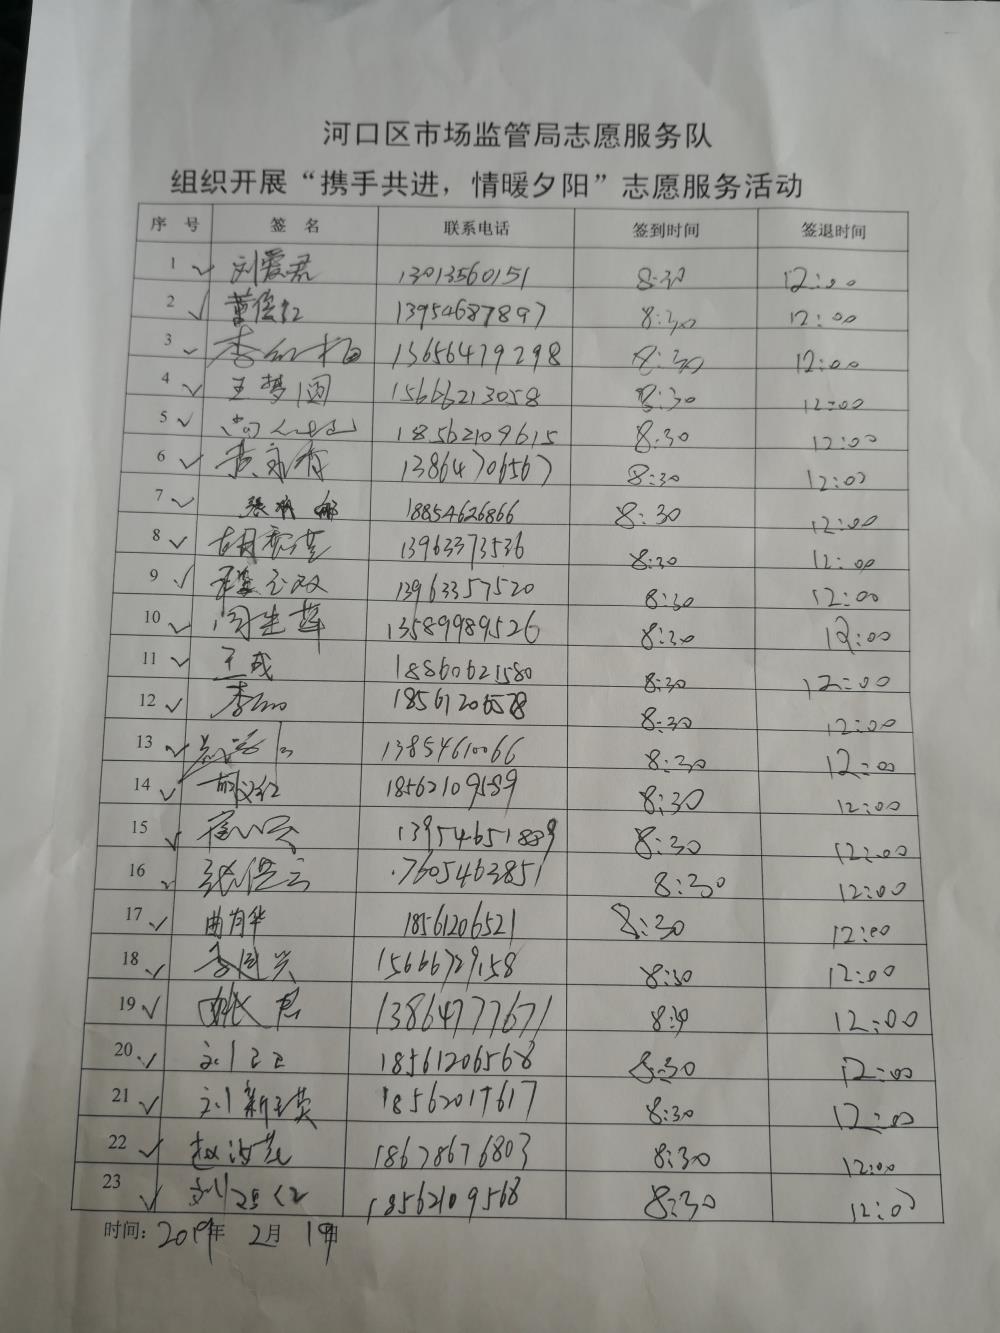 河口区市场监管局志愿服务队
组织开展“携手共进，情暖夕阳”志愿服务活动
序 号 签 名 联系电话 签到时间 签退时间
1 刘爱君 13013560151 8:30 12:00
2 13954687897 8:30 12:00
3 李红梅 13656479298 8:30 12:00
4 王梦圆 15666213058 8:30 12:00
5 18562109615 8:30 12:00
6 13864706567 8:30 12:00
7 张 娜 18854626866 8:30 12:00
8 胡秀莲 13963373536 8:30 12:00
9 13963357520 8:30 12:00
10 13589989526 8:30 12:00
11 王成 18860621580 8:30 12:00
12 18561206578 8:30 12:00
13 13854610066 8:30 12:00
14 18562109589 8:30 12:00
15 13954651889 8:30 12:00
16 7605463851 8:30 12:00
17 曲有华 18561206521 8:30 12:00
18 李国兴 15666729158 8:30 12:00
19 13864777671 8:30 12:00
20 18561206568 8:30 12:00
21 刘新英 18562017617 8:30 12:00
22 赵 18678676803 8:30 12:00
23 18562109568 8:30 12:00
时间：2019年 2月 19日